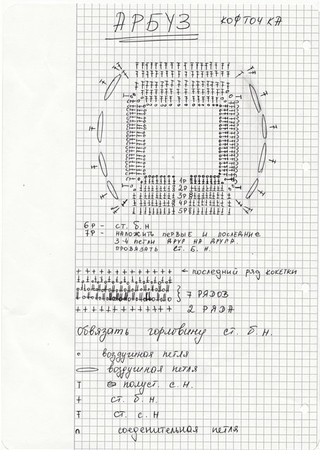 АРБУЗ КОФТОЧКА
7 7
7 7
7 7
7 7
1Р
2Р
3Р
4Р
5Р
6Р - СТ. Б. Н
7Р - НАЛОЖИТЬ ПЕРВЫЕ И ПОСЛЕДНИЕ
3-4 ПЕТЛИ ДРУГ НА ДРУГА
ПРОВЯЗАТЬ СТ. Б. Н.
← последний ряд кокетки
7 РЯДОВ
2 РЯДА
Обвязать горловину ст. б. н.
воздушная петля
воздушная петля
полуст. с. н.
ст. б. н.
ст. с. н
соеденительная петля